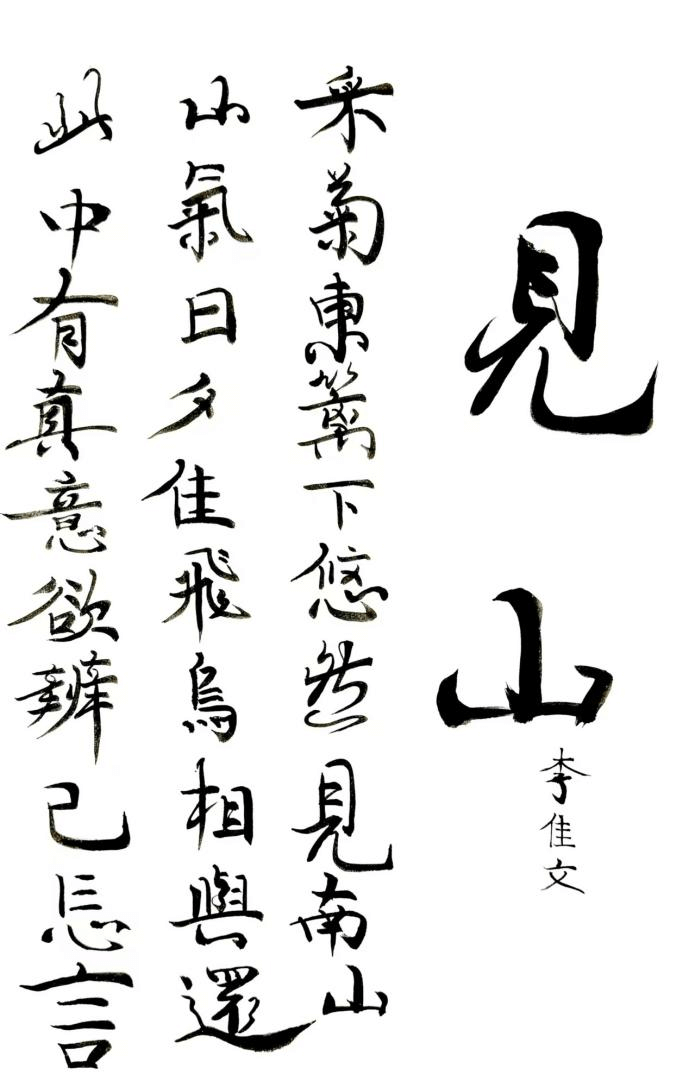 見山
李佳文
采菊東籬下悠然見南山
山氣日夕佳飛鳥相與還
此中有真意欲辨已忘言